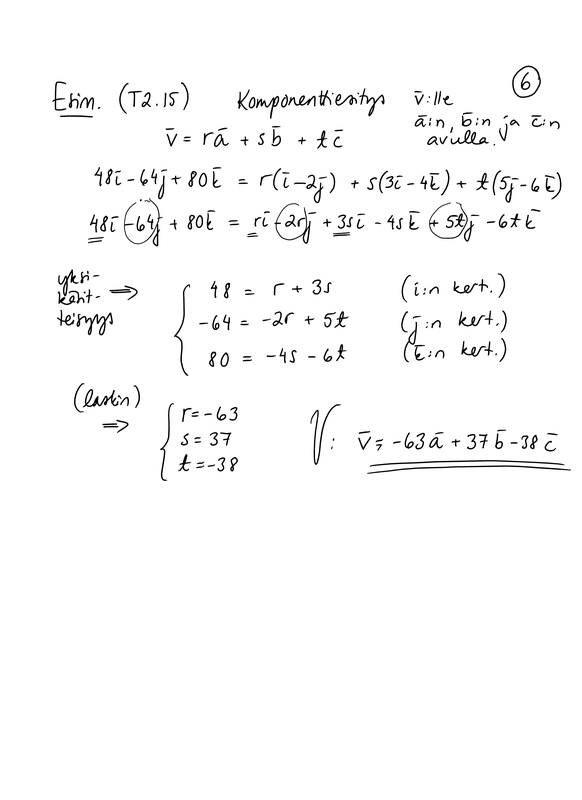 6
Esim. (T2.15) Komponenttiesitys v̄:lle
ā:n, b̄:n ja c̄:n
avulla.
v̄ = rā + sb̄ + tc̄
48ī - 64j̄ + 80k̄ = r(ī - 2j̄) + s(3ī - 4k̄) + t(5j̄ - 6k̄)
48ī - 64j̄ + 80k̄ = rī - 2rj̄ + 3sī - 4sk̄ + 5tj̄ - 6tk̄
yksi-
käsit-
teisyys ⇒
48 = r + 3s (ī:n kert.)
-64 = -2r + 5t (j̄:n kert.)
80 = -4s - 6t (k̄:n kert.)
(laskin)
⇒
r = -63
s = 37
t = -38
V: v̄ = -63ā + 37b̄ - 38c̄